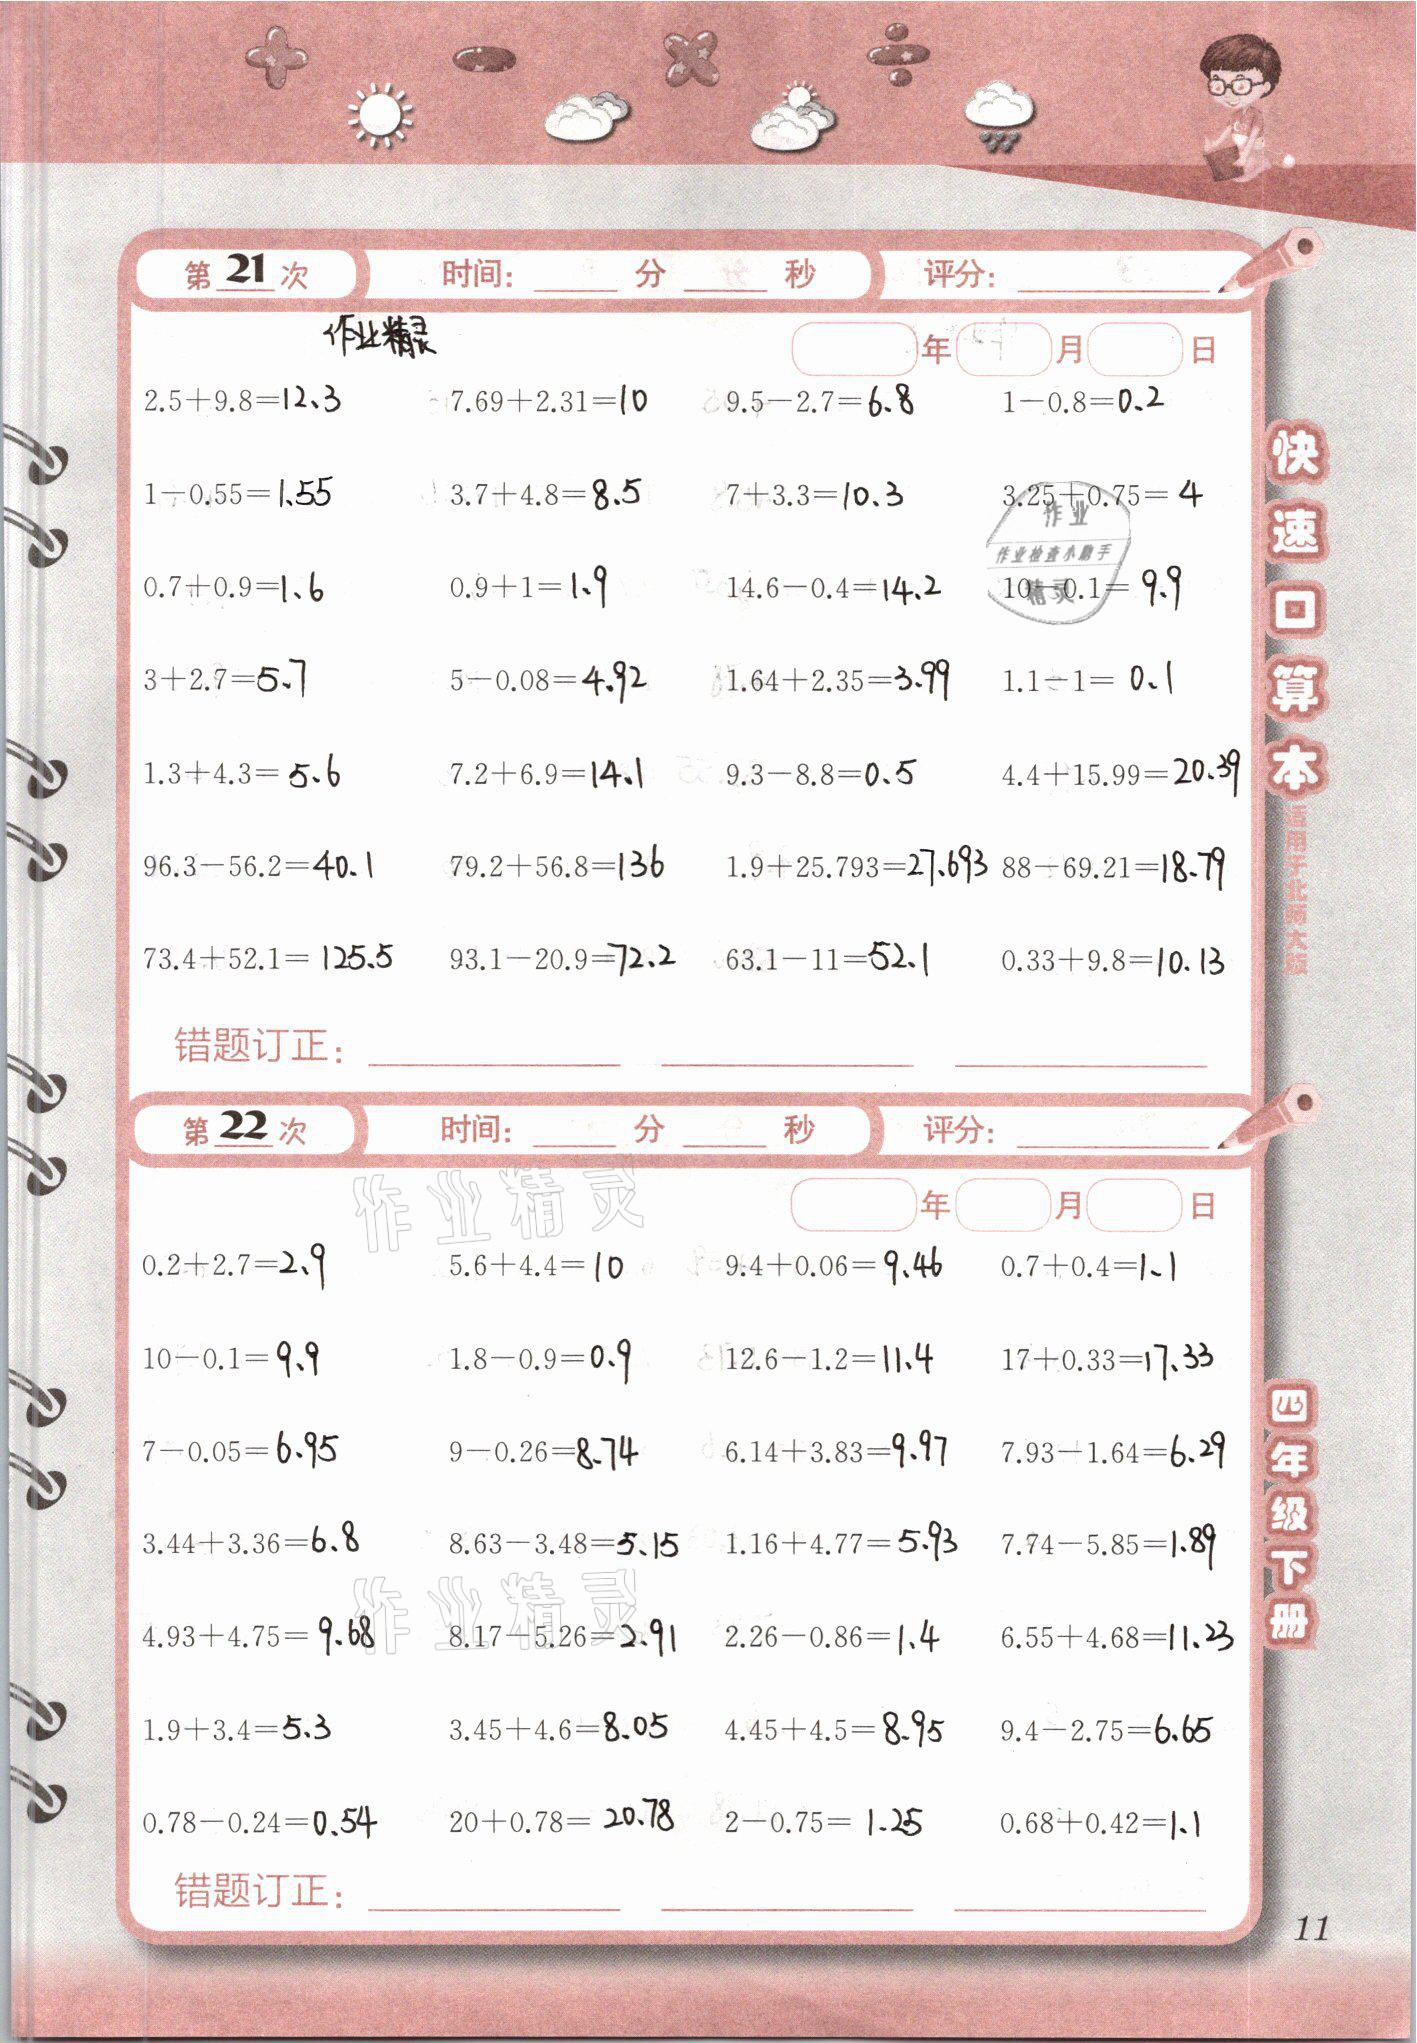 第 21 次 时间: 分 秒 评分:
作业精灵
年 月 日
2.5+9.8=12.3 7.69+2.31=10 9.5-2.7=6.8 1-0.8=0.2
1-0.55=1.55 3.7+4.8=8.5 7+3.3=10.3 3.25+0.75=4
作业
作业检查小助手
精灵
0.7+0.9=1.6 0.9+1=1.9 14.6-0.4=14.2 10-0.1=9.9
3+2.7=5.7 5-0.08=4.92 1.64+2.35=3.99 1.1-1=0.1
1.3+4.3=5.6 7.2+6.9=14.1 9.3-8.8=0.5 4.4+15.99=20.39
96.3-56.2=40.1 79.2+56.8=136 1.9+25.793=27.693 88-69.21=18.79
73.4+52.1=125.5 93.1-20.9=72.2 63.1-11=52.1 0.33+9.8=10.13
错题订正:
第 22 次 时间: 分 秒 评分:
作业精灵
年 月 日
0.2+2.7=2.9 5.6+4.4=10 9.4+0.06=9.46 0.7+0.4=1.1
10-0.1=9.9 1.8-0.9=0.9 12.6-1.2=11.4 17+0.33=17.33
7-0.05=6.95 9-0.26=8.74 6.14+3.83=9.97 7.93-1.64=6.29
3.44+3.36=6.8 8.63-3.48=5.15 1.16+4.77=5.93 7.74-5.85=1.89
作业精灵
4.93+4.75=9.68 8.17-5.26=2.91 2.26-0.86=1.4 6.55+4.68=11.23
1.9+3.4=5.3 3.45+4.6=8.05 4.45+4.5=8.95 9.4-2.75=6.65
0.78-0.24=0.54 20+0.78=20.78 2-0.75=1.25 0.68+0.42=1.1
错题订正:
快速口算本
适用于北师大版
四年级下册
11